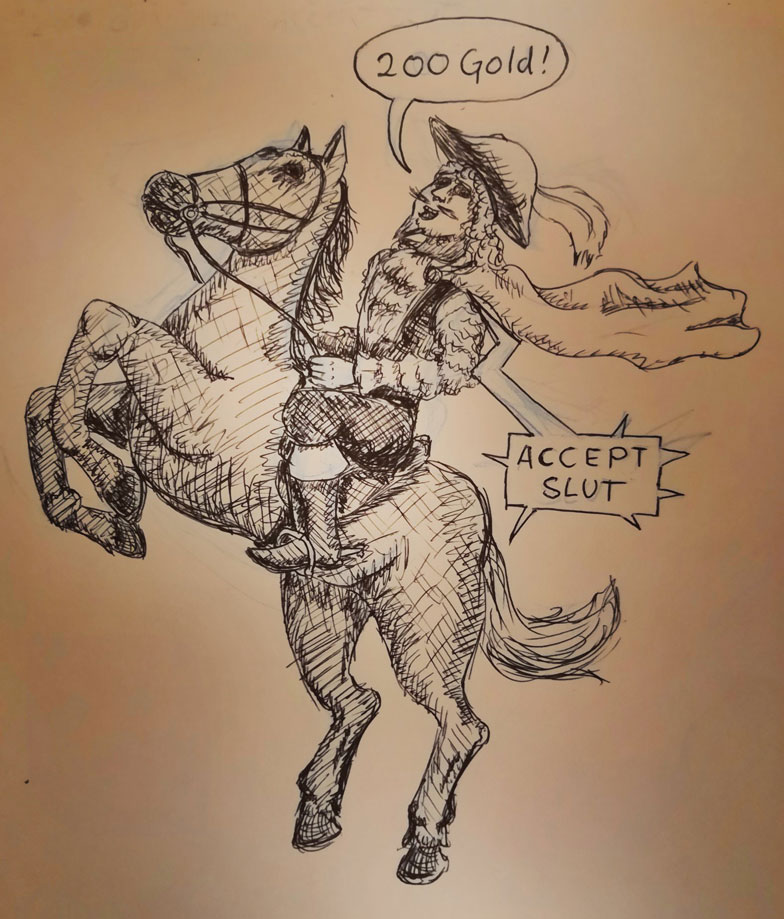 200 Gold!
ACCEPT
SLUT